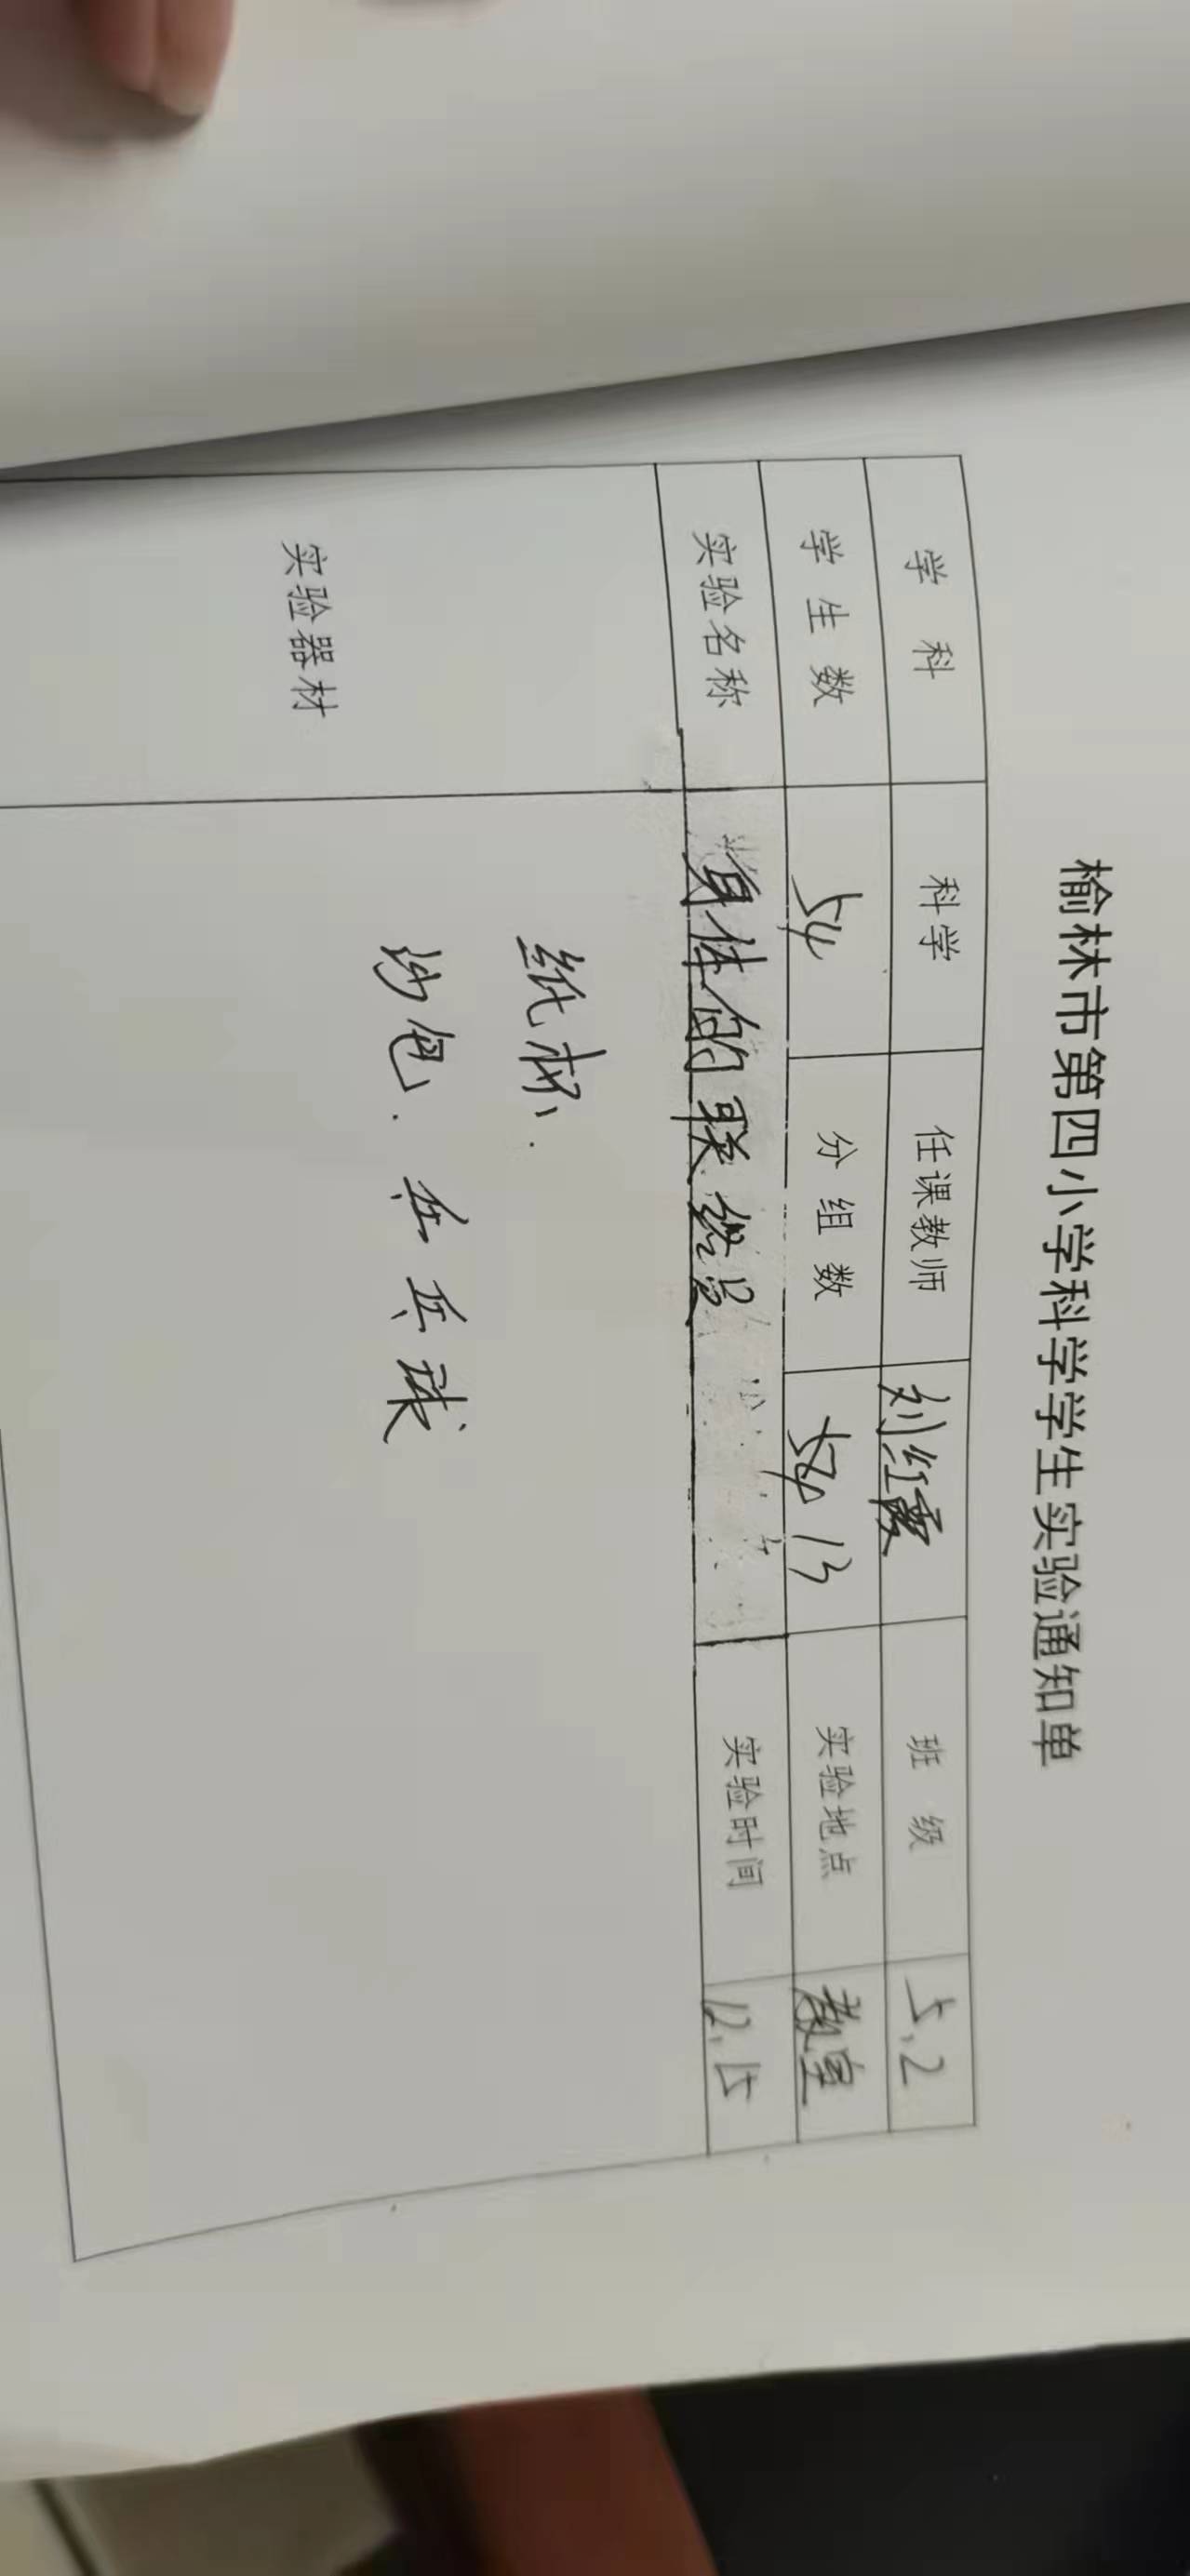 榆林市第四小学科学学生实验通知单
学 科 科学 任课教师 刘红霞 班 级 5.2
学 生 数 54 分 组 数 13 实验地点 教室
实验名称 身体的联络员 实验时间 12.15
实验器材
纸杯、
沙包、乒乓球